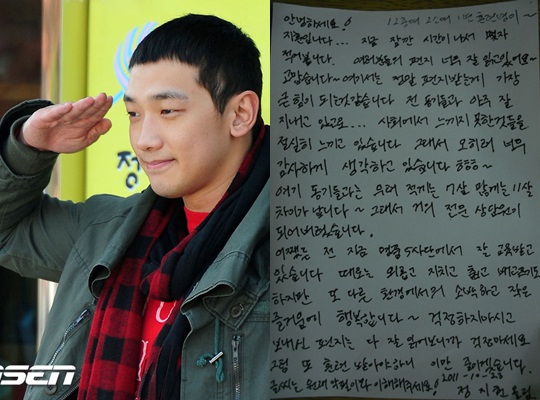 정
OSEN
안녕하세요!
12중대 2소대 1번 훈련병이~
지훈입니다... 지금 잠깐 시간이 나서 편지
적어봅니다. 여러분들의 편지 너무 잘 읽고있어요~
고맙습니다~ 여기서는 정말 편지받는게 가장
큰 힘이 되는것같습니다 전 동기들과 아주 잘
지내고 있고요... 사회에서 느끼지 못한것들을
절실히 느끼고 있습니다 그래서 오히려 너무
감사하게 생각하고 있습니다 ㅎㅎㅎ~
여기 동기들과는 유터 적게는 7살 많게는 11살
차이가 납니다~ 그래서 거의 전문 상담원이
되어버렸습니다.
어쨌든 전 지금 열쇠 5사단에서 잘 교육받고
있습니다 때로는 외롭고 지치고 춥고 배고프기도
하지만 또 다른 환경에서의 소박하고 작은
즐거움에 행복합니다~ 걱정하지마시고
보내신 편지는 다 잘 읽어보니까 걱정마세요
그럼 또 훈련 받아야하니 이만 줄이겠습니다.
글씨는 원래 악필이라 이해해주세요!
2011-10-23
정지훈 올림